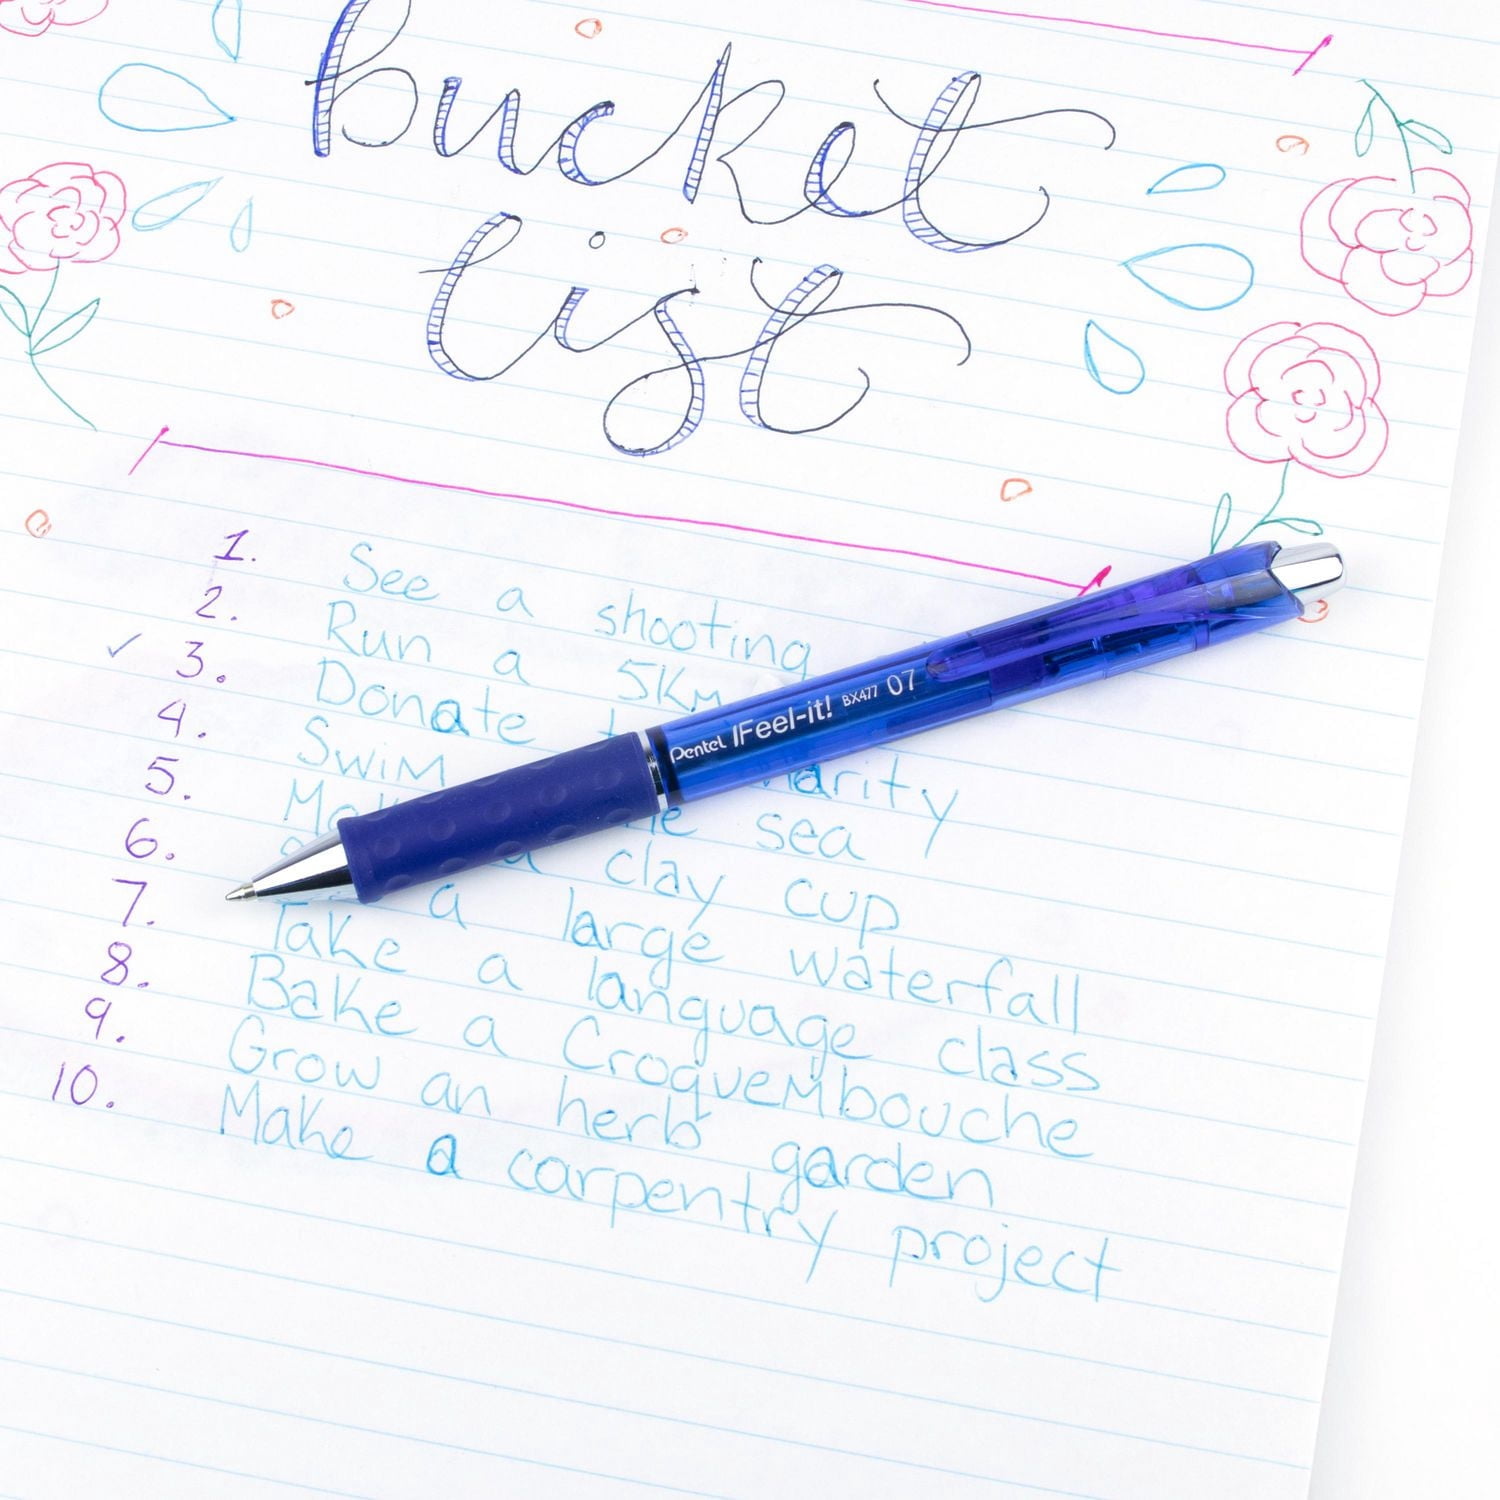 bucket
list
1. See a shooting
2. Run a 5Km
3. Donate
4. Swim sea
5. clay cup
6. a large waterfall
7. Take a language class
8. Bake a Croquembouche
9. Grow an herb garden
10. Make a carpentry project
Pentel IFeel-it! BX477 07